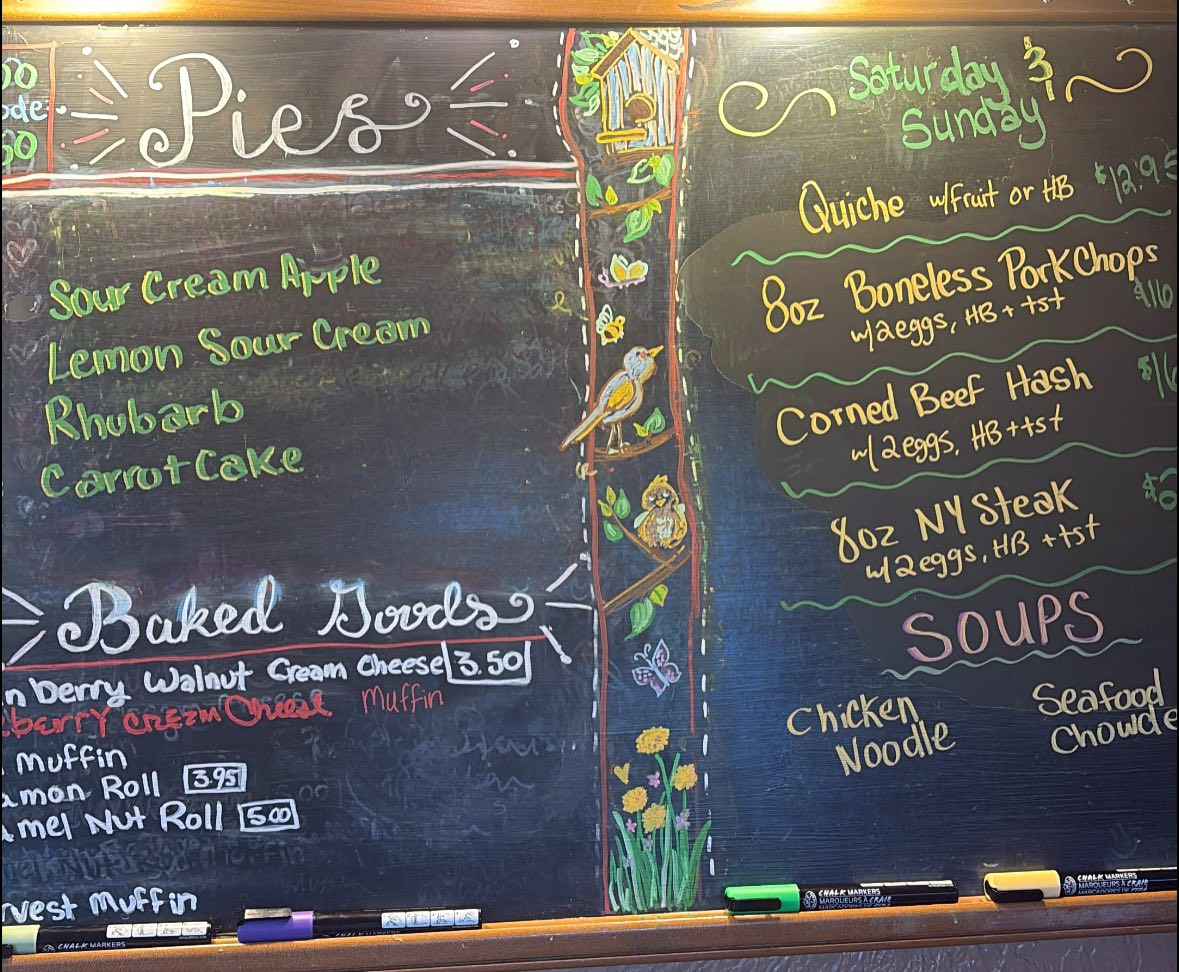 Pies
Sour Cream Apple
Lemon Sour Cream
Rhubarb
Carrot Cake
Baked Goods
berry Walnut Cream Cheese 3.50
berry cream Cheese Muffin
Muffin
Roll 3.95
Nut Roll 5.00
Muffin
Saturday &
Sunday
Quiche w/fruit or HB $12.95
8oz Boneless Pork Chops
w/2eggs, HB + tst $16
Corned Beef Hash $16
w/2eggs, HB + tst
8oz NY Steak
w/2eggs, HB + tst
SOUPS
Chicken
Noodle
Seafood
Chowde
CHALK MARKERS
CHALK MARKERS
MARQUEURS À CRAIE
CHALK MARKERS
MARQUEURS À CRAIE